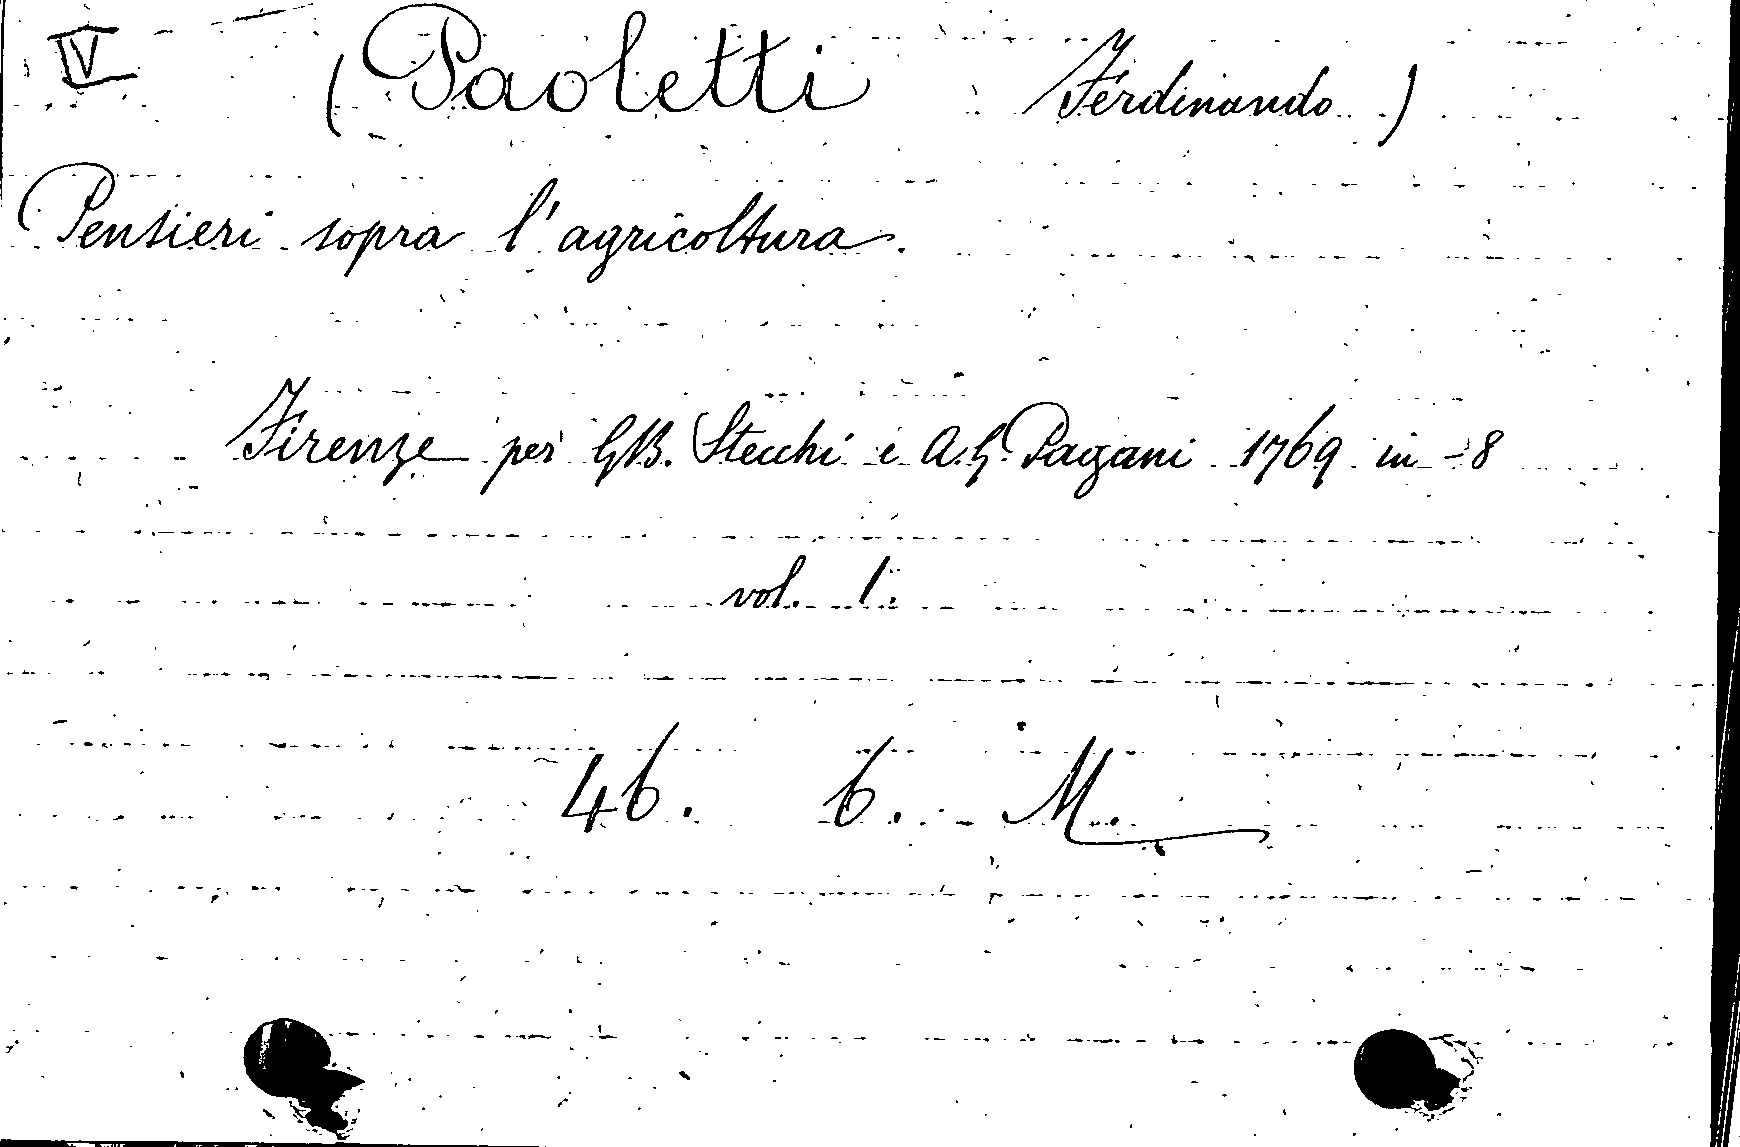 IV (Paoletti Ferdinando)
Pensieri sopra l'agricoltura.
Firenze per G.B. Stecchi e A.G. Pagani 1769 in-8
vol. 1.
46. 6. M.